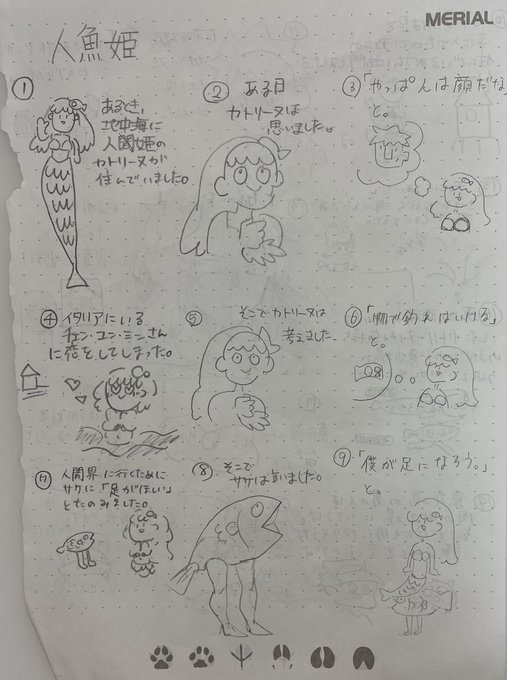 MERIAL
人魚姫
①
あるとき、
地中海に
人魚姫の
カトリーヌが
住んでいました。
② ある日
カトリーヌは
思いました。
③「やっぱ人は顔だな」
と。
④ イタリアにいる
チェン・ユン・ミンさん
に恋をしてしまった。
⑤ そこでカトリーヌは
考えました、
⑥「物で釣ればいける」
と。
⑦ 人間界に行くために
サケに「足がほしい」
とたのみました。
⑧ そこで
サケは言いました。
⑨「僕が足になろう。」
と。